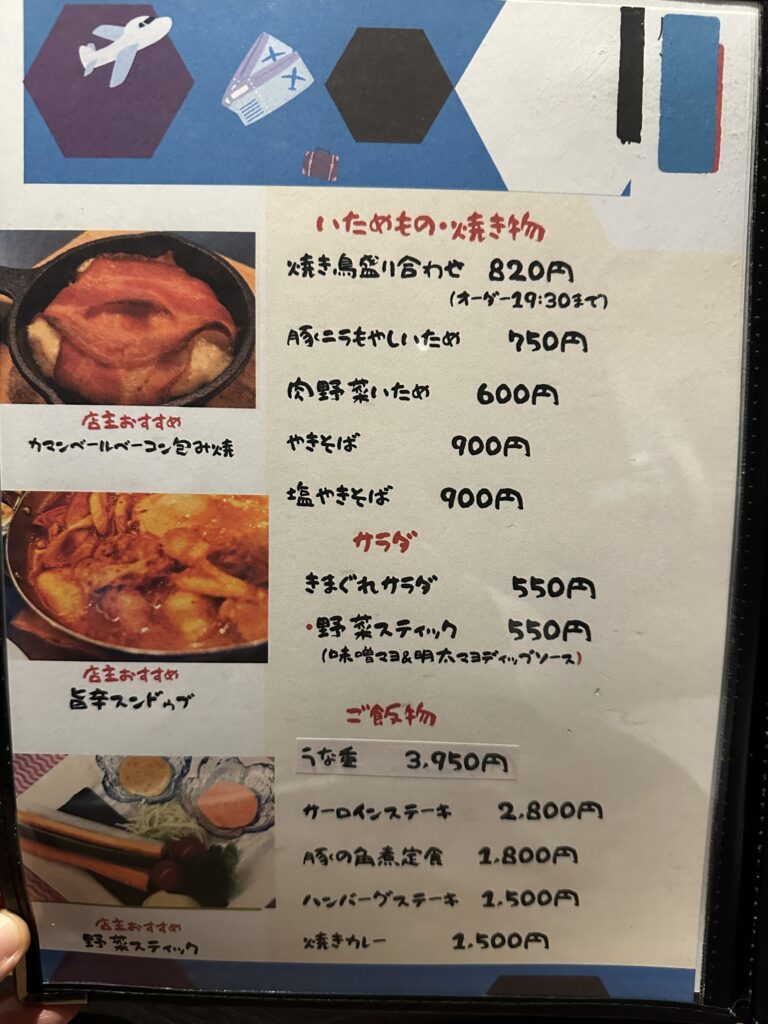 いためもの・焼き物
焼き鳥盛り合わせ 820円
(オーダー19:30まで)
豚ニラもやしいため 750円
肉野菜いため 600円
やきそば 900円
塩やきそば 900円
サラダ
きまぐれサラダ 550円
・野菜スティック 550円
(味噌マヨ&明太マヨディップソース)
ご飯物
うな重 3,950円
サーロインステーキ 2,800円
豚の角煮定食 1,800円
ハンバーグステーキ 1,500円
焼きカレー 1,500円
店主おすすめ
カマンベールベーコン包み焼
店主おすすめ
旨辛スンドゥブ
店主おすすめ
野菜スティック